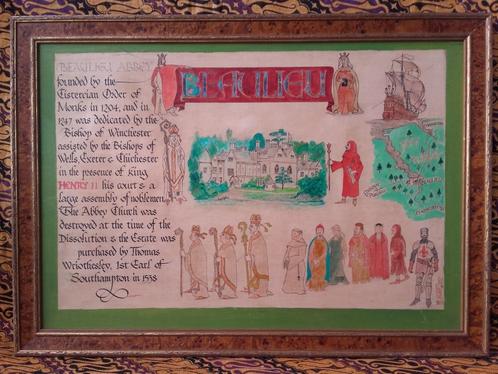 BEAULIEU ABBEY
founded by the
Cistercian Order of
Monks in 1204, and in
1247 was dedicated by the
Bishop of Winchester
assisted by the Bishops of
Wells, Exeter & Chichester
in the presence of King
HENRY II his court & a
large assembly of noblemen.
The Abbey Church was
destroyed at the time of the
Dissolution & the Estate was
purchased by Thomas
Wriothesley, 1st Earl of
Southampton in 1538
BEAULIEU